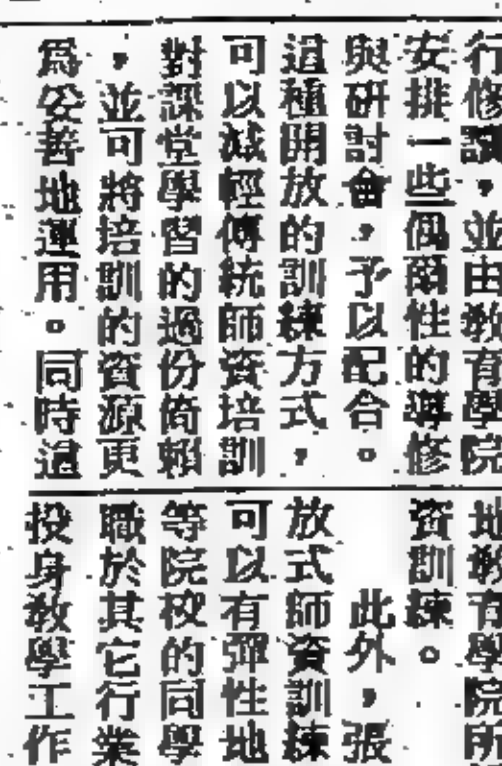 行修讀，並由教育學院
安排一些偶爾性的導修
與研討會，予以配合。
這種開放的訓練方式，
可以減輕傳統師資培訓
對課堂學習的過份倚賴
，並可將培訓的資源更
為妥善地運用。同時這
地教育學院所
資訓練。
此外，張
放式師資訓練
可以有彈性地
等院校的同學
職於其它行業
投身教學工作